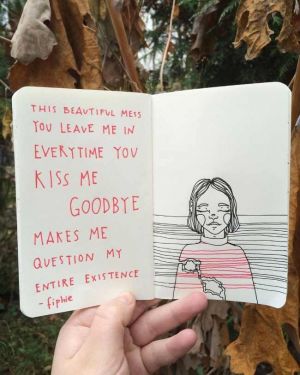 THIS BEAUTIFUL MESS
YOU LEAVE ME IN
EVERYTIME YOU
KISS ME
GOODBYE
MAKES ME
QUESTION MY
ENTIRE EXISTENCE
- fiphie